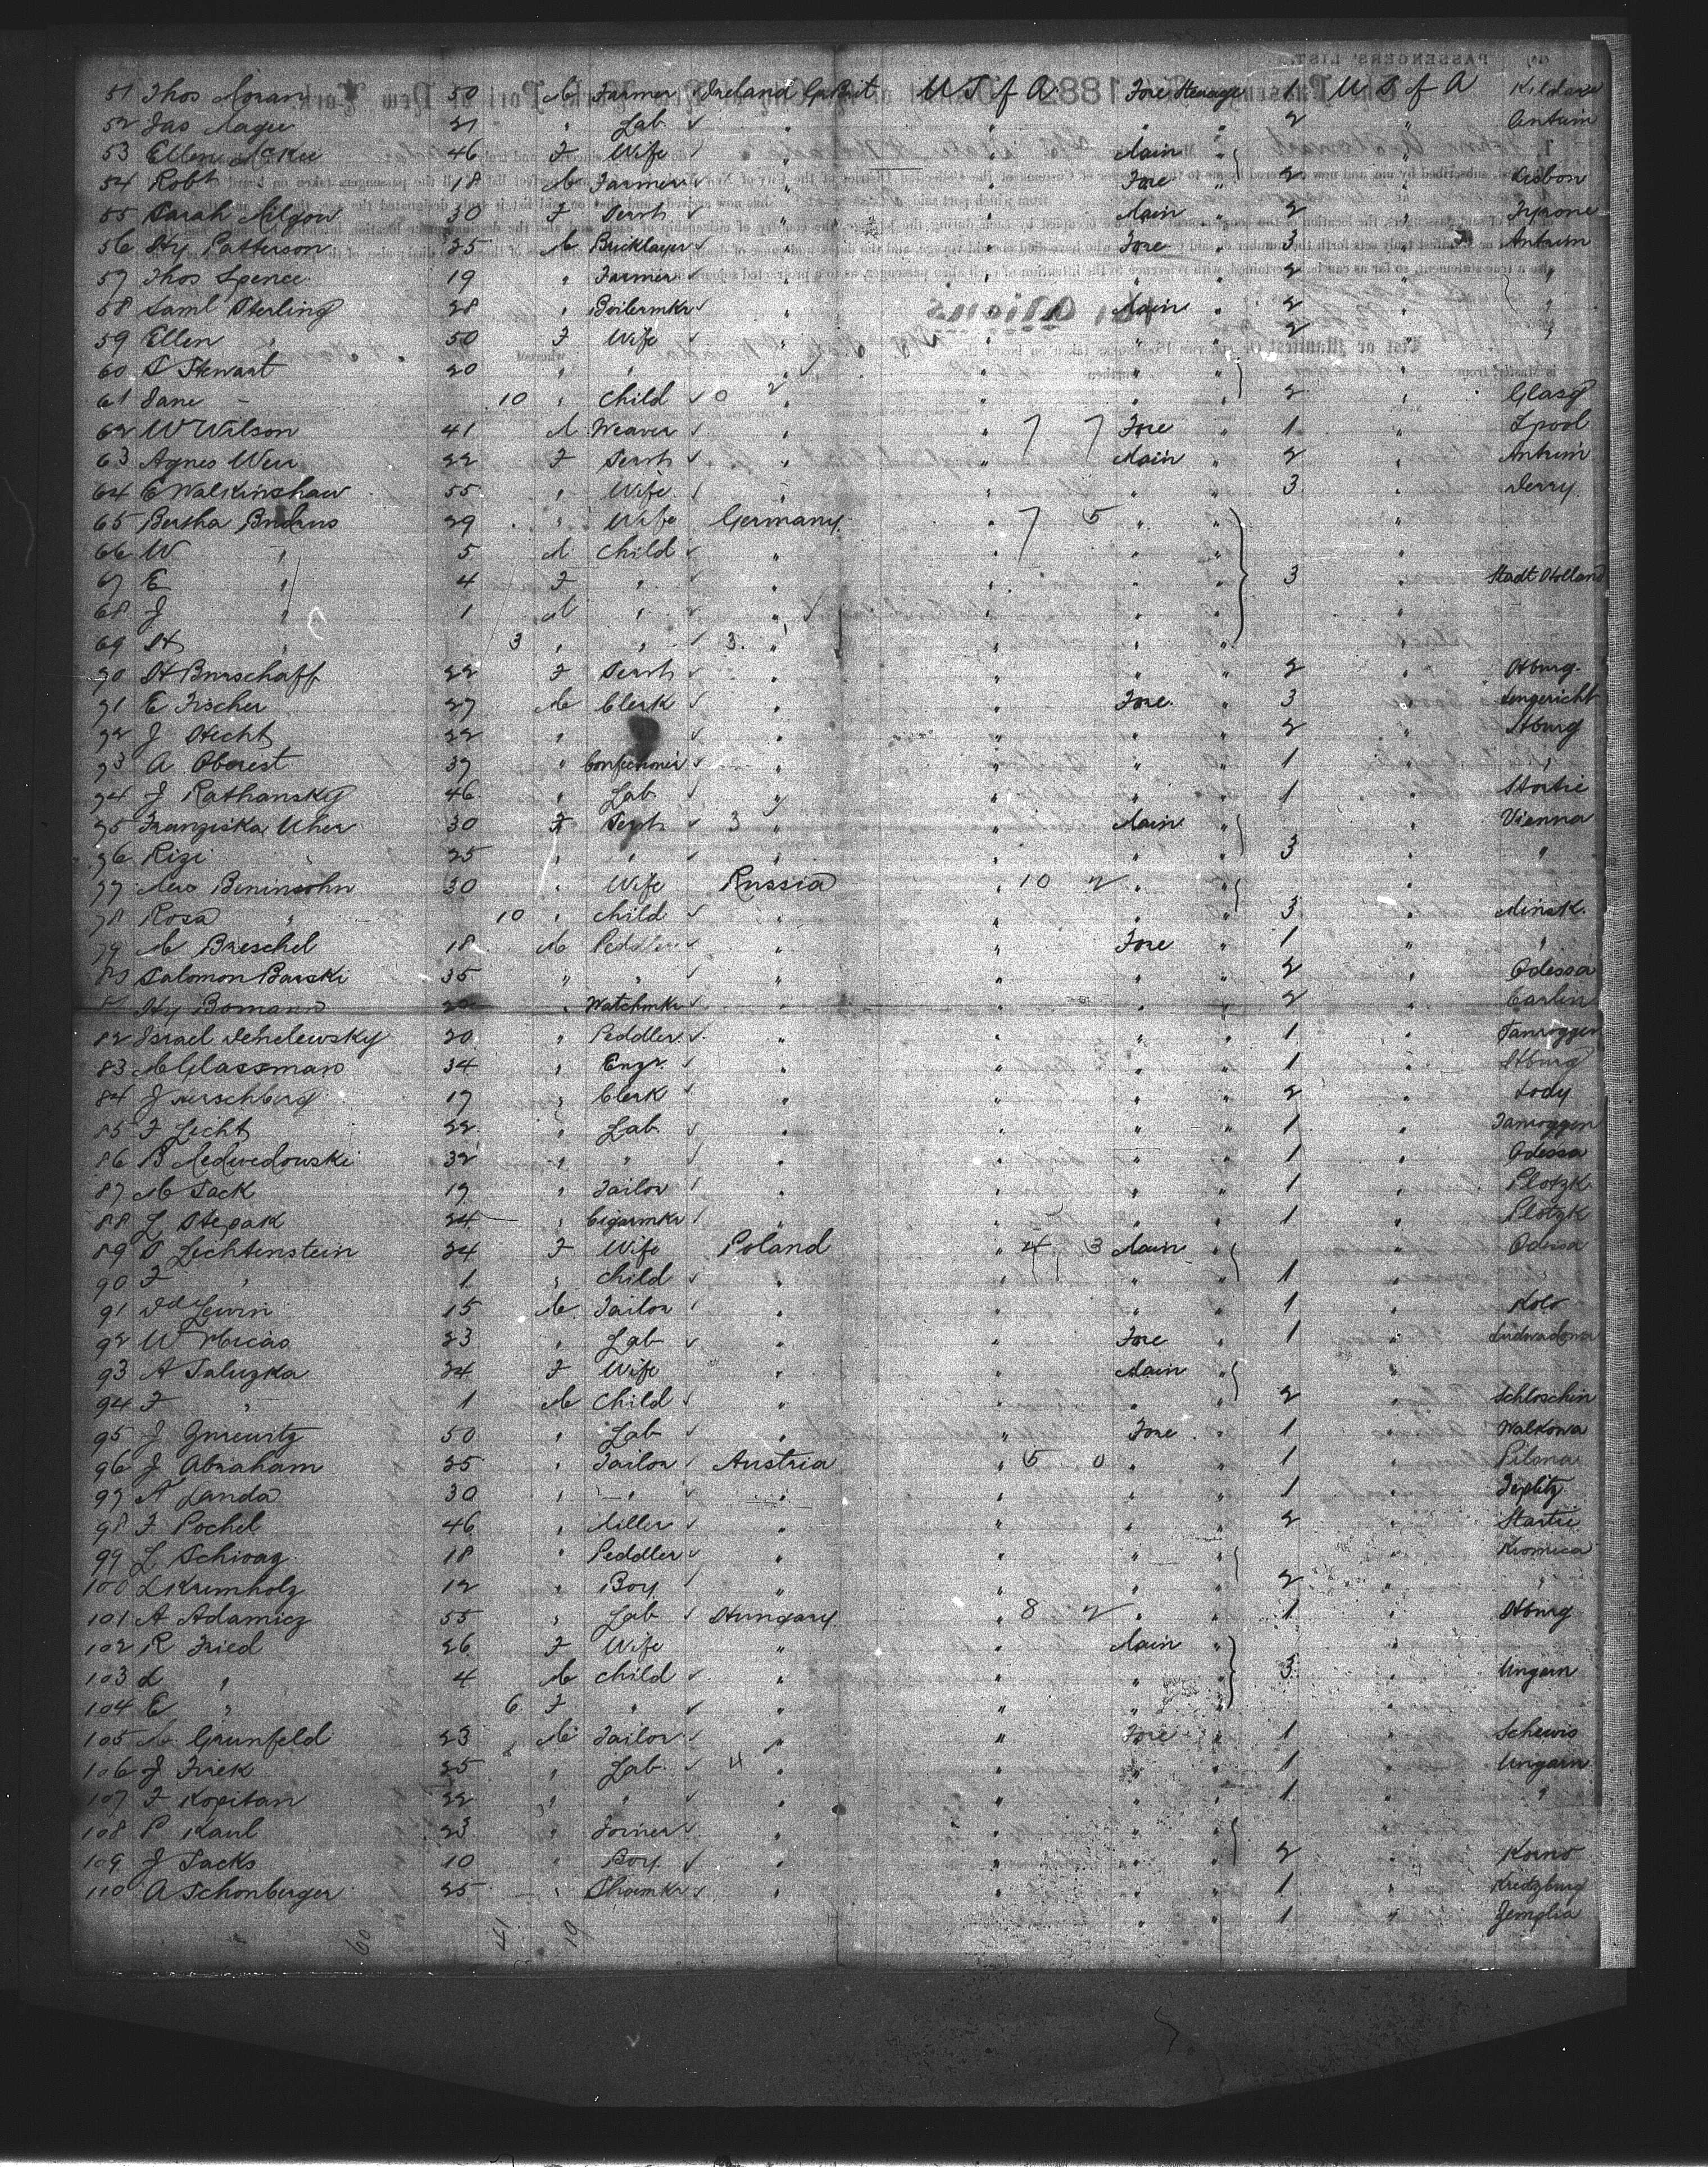 51 Thos Moran 50 M Farmer Ireland Gt Brit U S of A Fore Steerage 1 U S of A Kildare
52 Jas Magee 21 " Lab " " " " 2 " Antrim
53 Ellen McKee 46 F Wife " " Main " "
54 Robt " 18 M Farmer " " Fore " 2 " Lisbon
55 Sarah 30 F Servt " " Main " 2 " Tyrone
56 Hy Patterson 25 M Bricklayer " " Fore " 3 " Antrim
57 Thos Spence 19 " Farmer " " " " 2 " "
58 Saml Sterling 28 " Boilermkr " " Main " 2 " "
59 Ellen " 50 F Wife " " " " 2 " "
60 S Stewart 20 " " " " " " "
61 Jane - 10 " Child 0 2 " " " " 2 " Glasg
62 W Wilson 41 M Weaver " " 7 7 Fore " 1 " Lpool
63 Agnes Weir 22 F Servt " " Main " 2 " Antrim
64 E Walkinshaw 55 " Wife " " " " 3 " Derry
65 Bertha 29 " Wife Germany " 7 5 " " "
66 W " 5 M Child " " " " "
67 E " 4 F " " " " " 3 " Stadt Holland
68 J " 1 M " " " " " "
69 H " 3 " " 3 " " " " "
70 H Burschaff 22 F Servt " " " " 2 " Hburg
71 E Fischer 27 M Clerk " " Fore " 3 " Lengericht
72 J Hecht 22 " " " " " " 2 " Hburg
73 A Oberest 37 " Confectioner " " " " 1 " "
74 J Rathansky 46 " Lab " " " " 1 "
75 Franziska Uher 30 F Servt 3 " " Main " " Vienna
76 Rizi " 25 " " " " " " 3 " "
77 Mrs Beninsohn 30 " Wife Russia " 10 2 " " "
78 Rosa " 10 " Child " " " " 3 " Minsk
79 M Breschel 18 M Peddler " " Fore " 1 " "
80 Salomon Barski 35 " " " " " " 2 " Odessa
81 Hy Bomann " Watchmkr " " " " 2 " Carlin
82 Israel 20 " Peddler " " " " 1 " Tanroggen
83 M Glassman 34 " Engr " " " " 1 " Hburg
84 J Herschberg 17 " Clerk " " " " 2 " Lody
85 F Lecht 22 " Lab " " " " 1 " Tanroggen
86 B Medwedowski 32 " " " " " " 1 " Odessa
87 M Sack 19 " Tailor " " " " 1 " Plotzk
88 L Stepak 24 " Cigarmkr " " " " 1 " Plotzk
89 S Lichtenstein 24 F Wife Poland " 4 3 Main " " Odessa
90 F " 1 " Child " " " " 1 " "
91 Dd Lewin 15 M Tailor " " " " 1 " Kolo
92 W 23 " Lab " " Fore " 1 "
93 A Saluzka 24 F Wife " " Main " "
94 F " 1 M Child " " " " 2 " Schloschin
95 J Gurewitz 50 " Lab " " Fore " 1 " Walkowa
96 J Abraham 25 " Tailor Austria " 5 0 " " 1 " Pilsna
97 A Landa 30 " " " " " " 1 " Teplitz
98 F Pochel 46 " Miller " " " " 2 "
99 L Schwag 18 " Peddler " " " " "
100 L Krumholz 12 " Boy " " " " 2 " "
101 A Adamicz 55 " Lab Hungary " 8 2 " " 1 " Hburg
102 R Fried 26 F Wife " " Main " "
103 L " 4 M Child " " " " 3 " Ungarn
104 E " 6 F " " " " " "
105 M Grunfeld 23 M Tailor " " Fore " 1 "
106 J Firek 25 " Lab 4 " " " " 1 " Ungarn
107 F Kopitan 22 " " " " " " 1 " "
108 P Kaul 23 " Joiner " " " " "
109 J Sacks 10 " Boy " " " " 2 "
110 A Schonberger 25 " Shoemkr " " " " 1 "
" " 1 " Zemplia
60 41 19